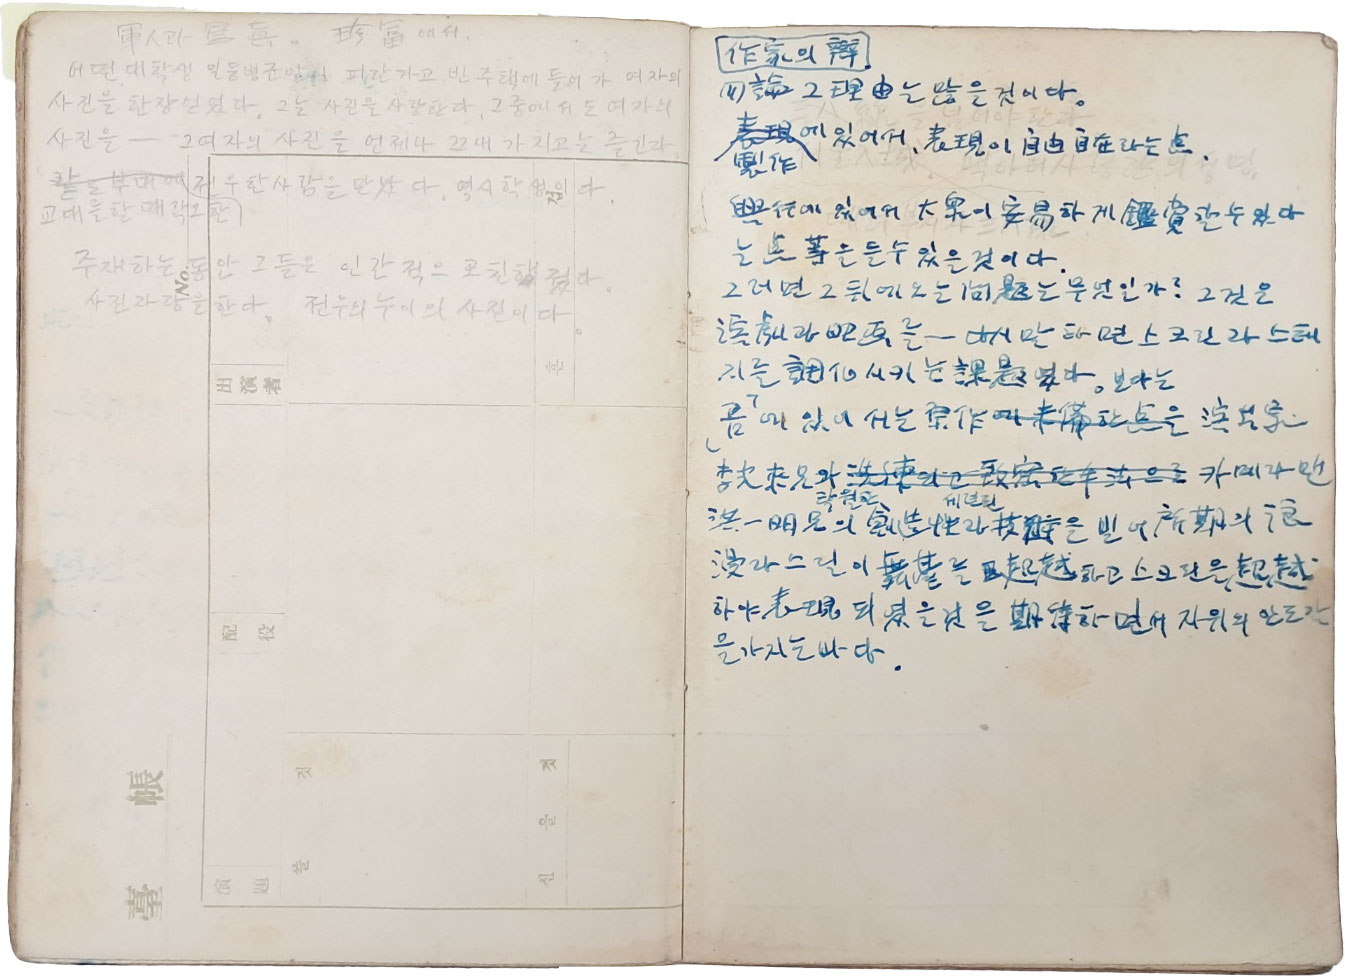 軍人과 寫眞。 珍富에서.
어떤 대학생 일등병은 피란가고 빈 주택에 들어가 여자의
사진을 한장 얻었다. 그는 사진을 사랑한다. 그중에서도 여자의
사진을 — 그여자의 사진을 언제나 꼬내 가지고는 즐긴다.
같는 부대에 전우한사람을 만났다. 역시 학생이다.
교대를 한 대학
주재하는 동안 그들은 인간적으로 친해졌다.
사진자랑을 한다. 전우의 누이의 사진이다.
No.
出演者
配役
演題
臺帳
作家의 辯
勿論 그 理由는 많을 것이다.
表現에 있어서, 表現이 自由自在라는 点.
製作
興行에 있어서 大衆이 安易하게 鑑賞할 수 있다
는 点 等을 들 수 있을 것이다.
그러면 그 뒤에 오는 問題는 무엇인가? 그것은
演劇과 映画를 — 다시 말하면 스크린과 스테
지를 調化시키는 課題였다. 보다는
「곰」에 있어서는 原作에 未備한 点을 演出家
李 兄와 洗練되고 致密한 手法으로 카메라맨
탁월한 세련된
洪一明 兄의 創造性과 技術을 빌어 所期의 浪
漫과 스릴이 舞臺를 超越하고 스크린을 超越
하야 表現되였을 것을 期待하면서 자위의 안도감
을 가지는 바다.